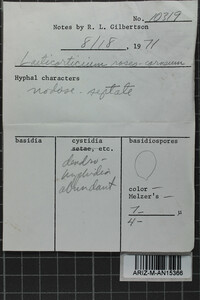 No. 10319
Notes by R. L. Gilbertson
8/18, 1971
Laeticorticium roseo-carneum
Hyphal characters
nodose-septate
basidia
cystidia
setae, etc.
basidiospores
dendro-
hyphidia
abundant
color –
Melzer's –
7- μ
4-
ARIZ-M-AN15366